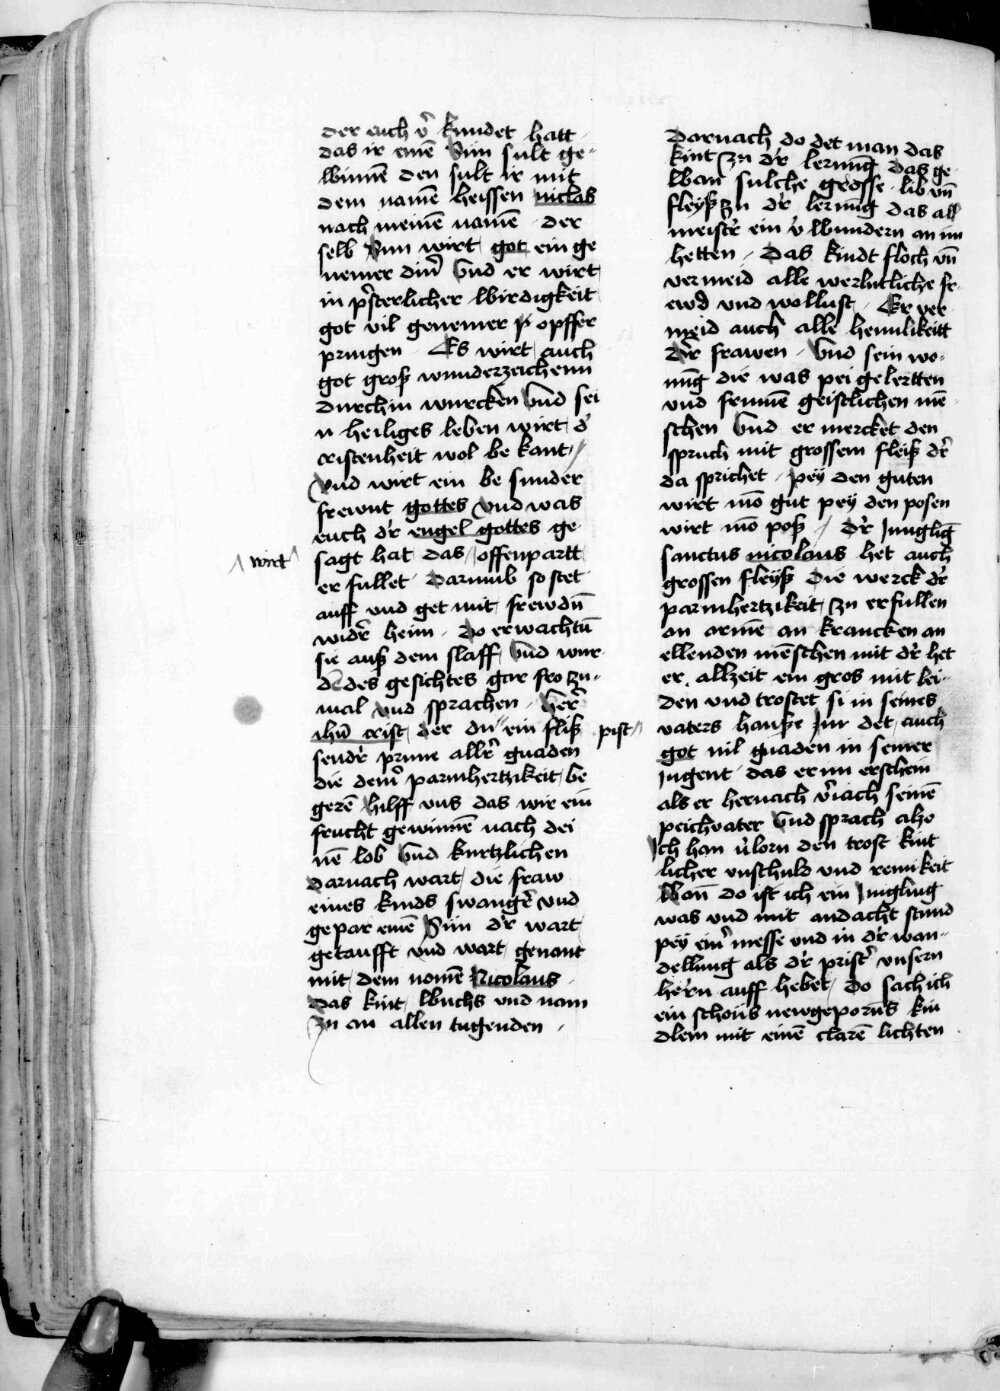 der euch v̄ kundet hatt
das ir einē Sun sult ge-
winnē den sult ir mit
dem namē heissen niclas
nach meinē namē der
selb Sun wirt got ein ge
nemer din̄ Vnd er wirt
in pr̄sterlicher wirdigkeit
got vil genemer opffer
pringen Es wirt auch
got groß wunderzeichenn
durch in wurcken Vnd sei
n heiliges leben wirt d'
cristenheit wol be kant
Vnd wirt ein be sunder
frewnt gottes Vnd was
euch d'r engel gottes ge
sagt hat das offenpartt
wirt
er fullet Darumb so stet
auff vnd get mit frewdn̄
wid'r heim Do erwachtn̄
sie auß dem slaff Vnd wur
dē des gesichtes gar fro zu-
mal vnd sprachen Her'
ihū crist der du ein fliß pist
send'r prunē all'r gnaden
die dein' parmhertzikeit be
gerē hilff vns das wir ein
frucht gewinnē nach dei
nē lob Vnd kurtzlichen
Darnach wart die fraw
eines kinds swang'e vnd
gepar einē Sun d'r wart
getaufft vnd wart genant
mit dem nomē Nicolaus
Das kint wuchs vnd nam
zu an allen tugenden
Darnach do det man das
kint zu d'r lernūg das ge
wan sulche grosse lib vn̄
fleyß zu d'r lernūg das all
meist'r ein v' wundern an im
hetten Das kindt floch vn̄
vermeid alle werltliche fr
ewd vnd wollust Er ver
meid auch alle heimlikeitt
d'r frawen Vnd sein wo-
nūg die was pei gelertten
vnd frumē geistlichen mē
schen Vnd er mercket den
spruch mit grossem fleiß d'r
da sprichet pey den guten
wirt mō gut pey den posen
wirt mō poß D'r Jungling
sanctus nicolaus het auch
grossen fleyß die werck d'r
parmhertzikeit zu erfullen
an armē an krancken an
ellenden mēschen mit d'r het
er allzeit ein gros mit lei-
den vnd trostet si in seines
vaters hauße Im det auch
got vil gnaden in seiner
Jugent das er im erschein
als er hernach v'iach seinē
peichvater Vnd sprach also
Ich han v'lorn den trost kint
licher vnschuld vnd reinikeit
Wan̄ do ist ich ein Jungling
was vnd mit andacht stund
pey ein' messe vnd in d'r wan-
dellung als d'r prist' vnsern
hern auff hebet Do sach ich
ein schons newgeporns kin
dlein mit einē clarē lichten